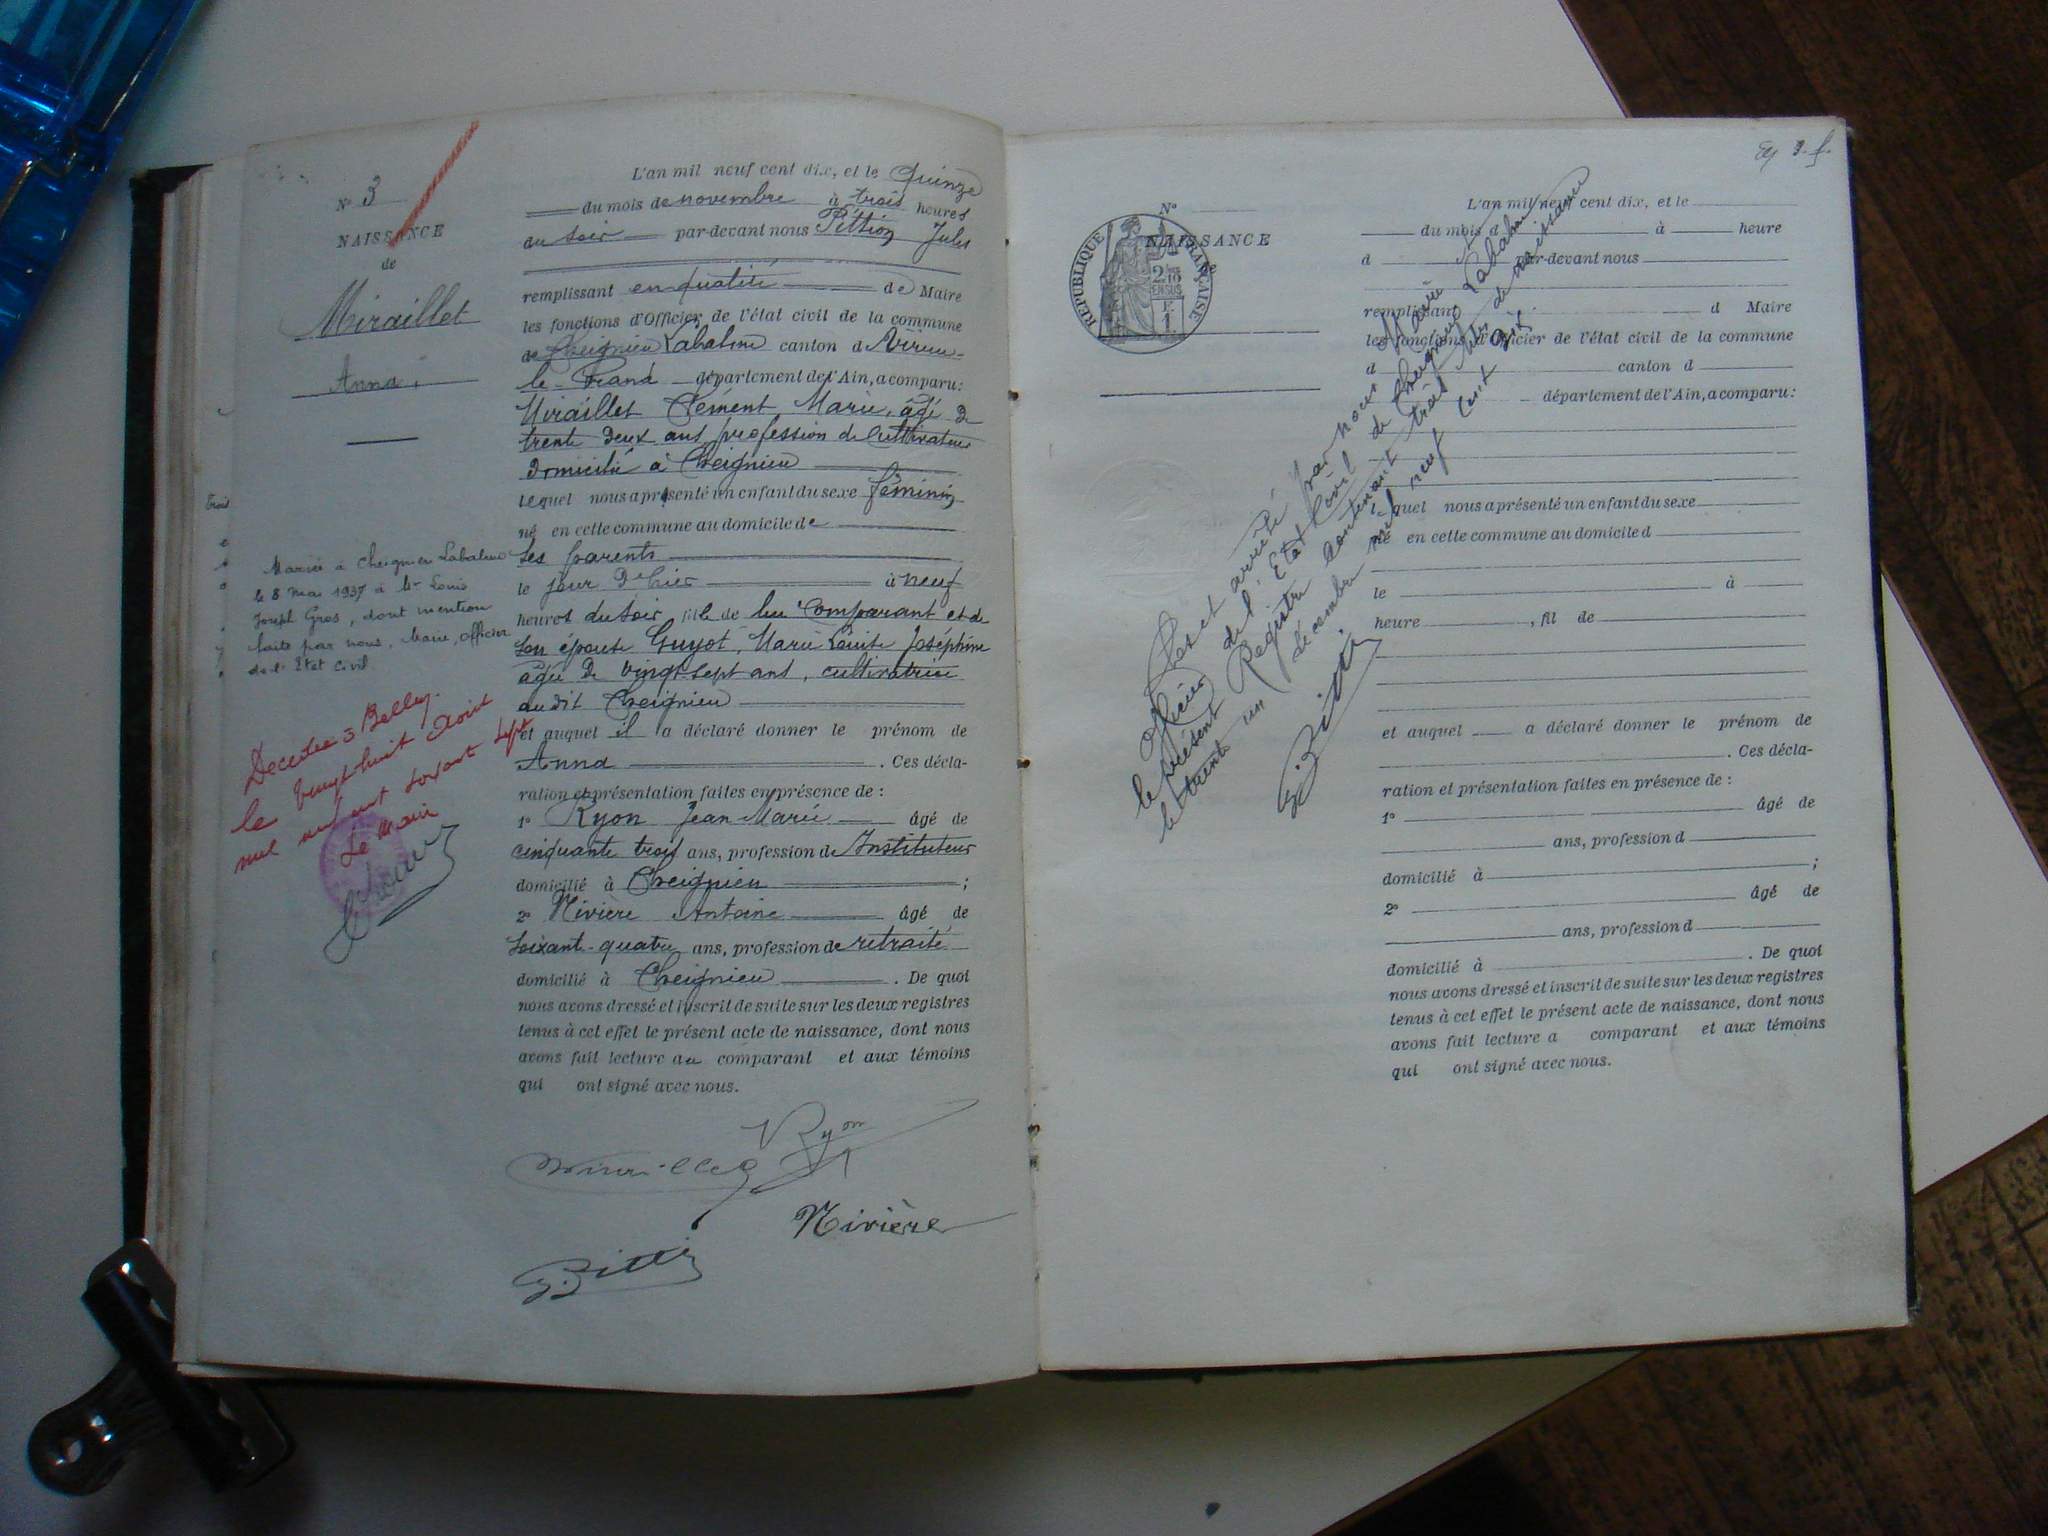 N° 3
NAISSANCE
de
Miraillet
Anna
Mariée à Cheignieu Labalme
le 8 Mai 1937 à Mr Louis
Joseph Gros, dont mention
faite par nous, Maire, officier
de l'Etat Civil
Decedee a Belley
le vingt huit Août
mil neuf cent soixant sept
Le Maire
L'an mil neuf cent dix, et le Quinze
du mois de novembre à trois heures
du soir par-devant nous Pittion Jules
remplissant en qualité de Maire
les fonctions d'Officier de l'état civil de la commune
de Cheignieu Labalme canton d Virieu-
le-Grand département de l'Ain, a comparu:
Miraillet Clément Marie, âgé de
trente deux ans profession de Cultivateur
domicilié à Cheignieu
lequel nous a présenté un enfant du sexe féminin
né en cette commune au domicile de
ses parents
le jour d'hier à neuf
heures du soir, fille de lui comparant et de
son épouse Guyot, Marie Louise Joséphine
âgée de vingt sept ans, cultivatrice
au dit Cheignieu
et auquel il a déclaré donner le prénom de
Anna . Ces décla-
ration et présentation faites en présence de :
1° Ryon Jean-Marie âgé de
cinquante trois ans, profession de Instituteur
domicilié à Cheignieu ;
2° Nivière Antoine âgé de
soixant-quatre ans, profession de retraité
domicilié à Cheignieu . De quoi
nous avons dressé et inscrit de suite sur les deux registres
tenus à cet effet le présent acte de naissance, dont nous
avons fait lecture au comparant et aux témoins
qui ont signé avec nous.
Ryon
Miraillet
Nivière
J. Pittion
N°
NAISSANCE
RÉPUBLIQUE FRANÇAISE
L'an mil neuf cent dix, et le
du mois d à heure
d par-devant nous
remplissant d Maire
les fonctions d'Officier de l'état civil de la commune
d canton d
département de l'Ain, a comparu:
lequel nous a présenté un enfant du sexe
né en cette commune au domicile d
le à
heure , fil de
et auquel a déclaré donner le prénom de
. Ces décla-
ration et présentation faites en présence de :
1° âgé de
ans, profession d
domicilié à ;
2° âgé de
ans, profession d
domicilié à . De quoi
nous avons dressé et inscrit de suite sur les deux registres
tenus à cet effet le présent acte de naissance, dont nous
avons fait lecture a comparant et aux témoins
qui ont signé avec nous.
Clos et arrêté par nous Maire
Officier de l'Etat Civil de Cheignieu Labalme
le présent Registre contenant trois actes de naissance
le trente un décembre mil neuf cent dix
J. Pittion